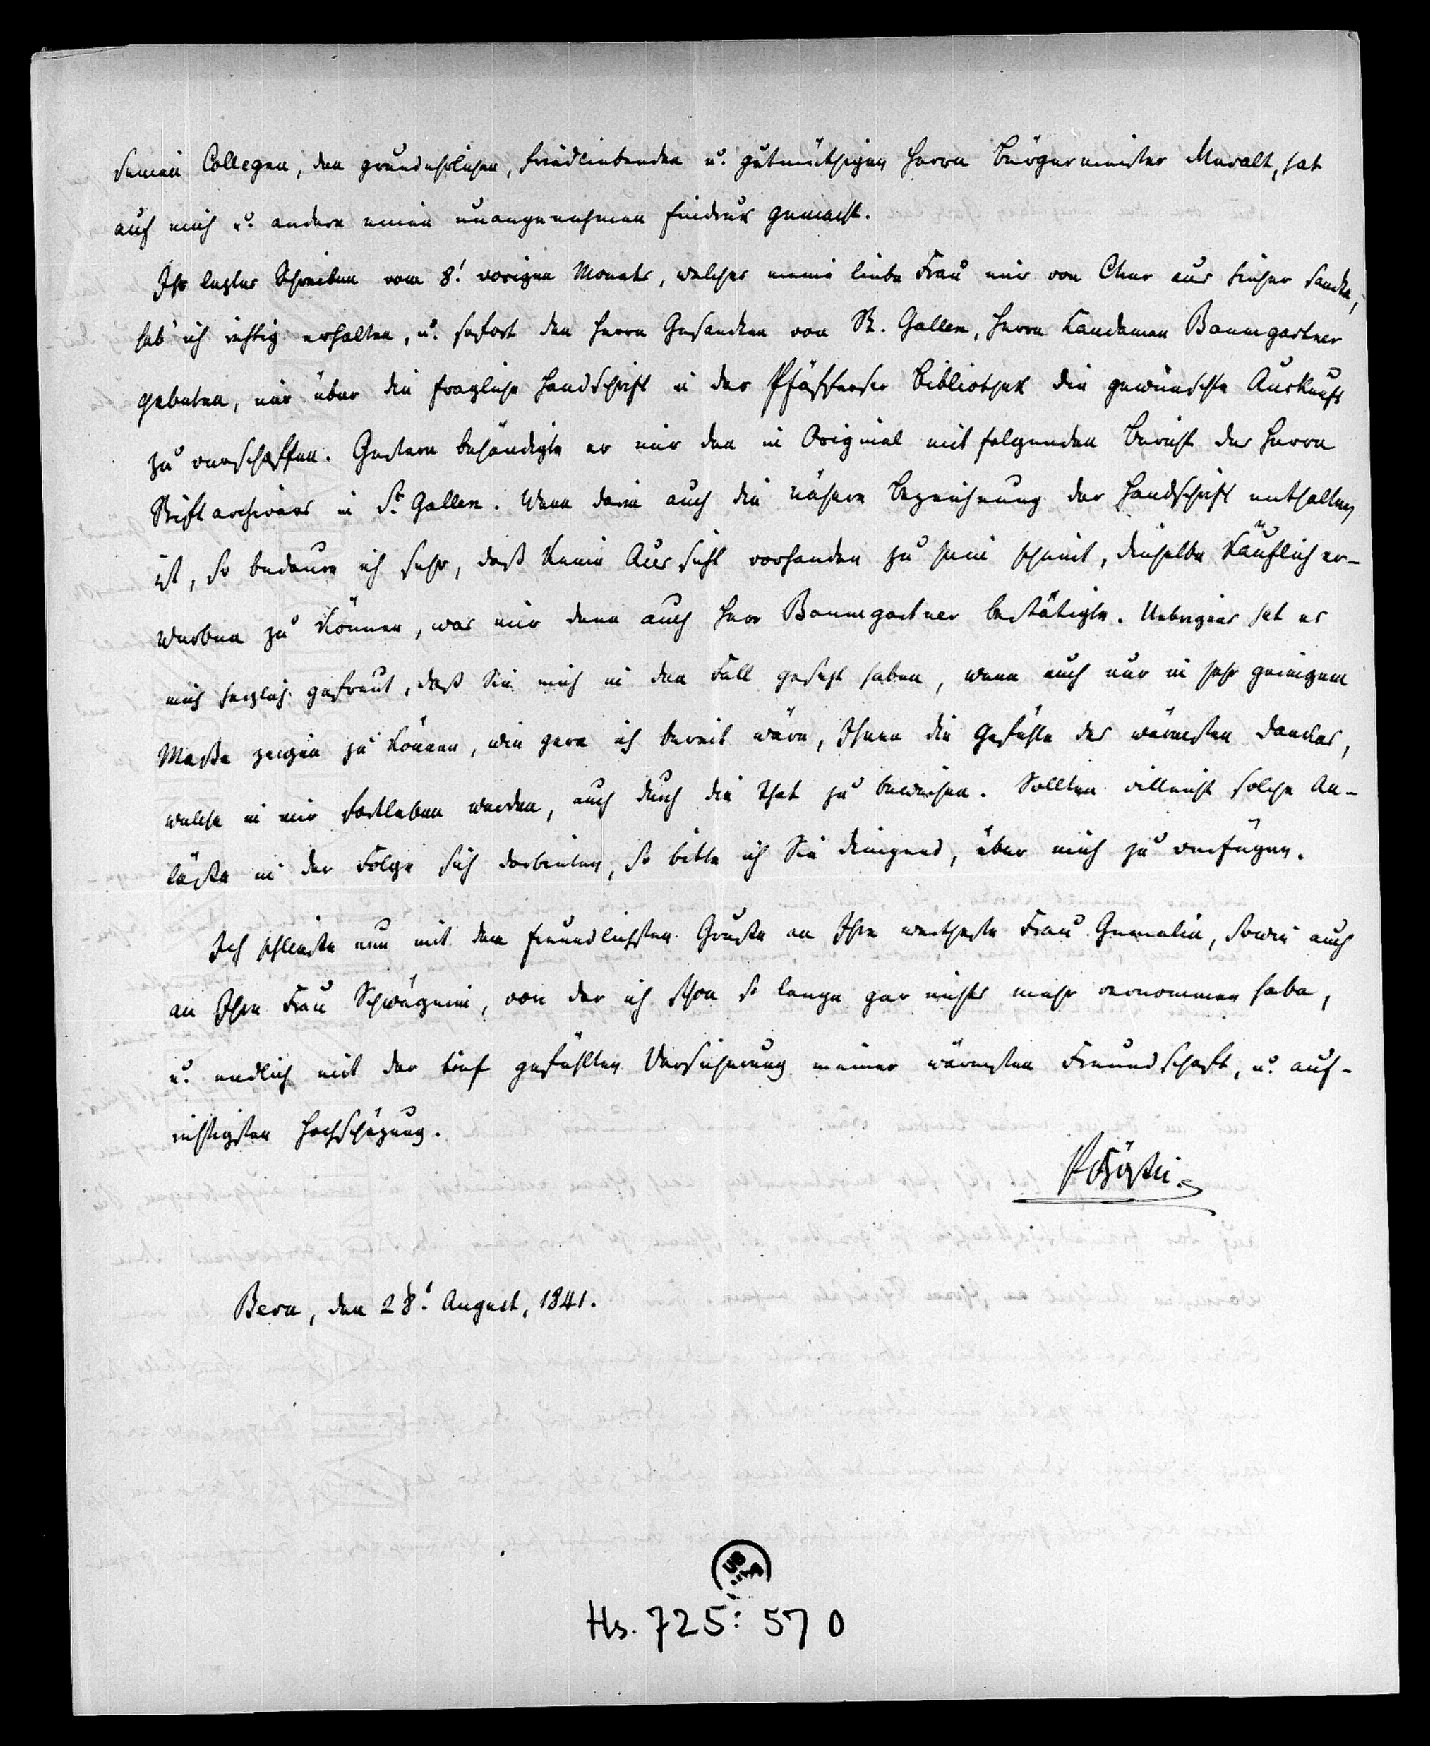 seinen Collegen, den grundehrlichen, friedliebenden u. gutmüthigen Herrn Bürgermeister Muralt, hat
auf mich u. andere einen unangenehmen Eindruk gemacht.
Ihr leztes Schreiben vom 8t vorigen Monats, welches meine liebe Frau mir von Chur aus hieher sandte,
hab' ich richtig erhalten, u. sofort den Herrn Gesandten von St. Gallen, Herrn Landaman Baumgartner
gebeten, mir über die fragliche Handschrift in der Pfäfferser Bibliothek die gewünschte Auskunft
zu verschaffen. Gestern behändigte er mir den in Original mit folgenden Bericht des Herrn
Stiftarchivars in St. Gallen. Wenn darin auch die nähere Bezeichnung der Handschrift enthalten
ist, so bedaure ich sehr, daß keine Aussicht vorhanden zu sein scheint, dieselbe käuflich er-
werben zu können, was mir denn auch Herr Baumgartner bestätigte. Uebrigens hat es
mich herzlich gefreut, daß Sie mich in den Fall gesezt haben, wenn auch nur in sehr geringem
Maße zeigen zu können, wie gern ich bereit wäre, Ihnen die Gefühle des wärmsten Dankes,
welche in mir fortleben werden, auch durch die That zu beweisen. Sollten villeicht solche An-
läße in der Folge sich darbieten, so bitte ich Sie dringend, über mich zu verfügen.
Ich schließe nun mit dem freundlichsten Gruße an Ihre wertheste Frau Gemalin, sowie auch
an Ihre Frau Schwägerin, von der ich schon so lange gar nichts mehr vernommen habe,
u. endlich mit der tief gefühlten Versicherung meiner wärmsten Freundschaft, u. auf-
richtigsten Hochschäzung.
Bern, den 28t August, 1841.
Hs. 725: 570